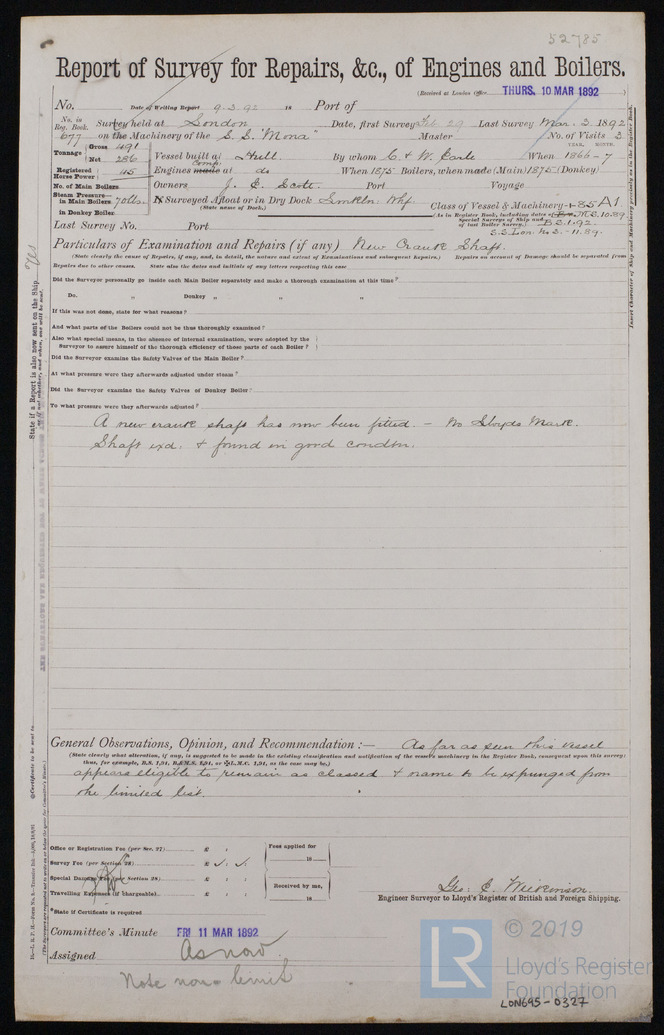 52785
Report of Survey for Repairs, &c., of Engines and Boilers.
(Received at London Office THURS. 10 MAR 1892
No. Date of Writing Report 9.3.92 18 Port of
No. in Reg. Book. Survey held at London Date, first Survey Feb 29 Last Survey Mar. 3. 1892
677 on the Machinery of the S.S. "Mona" Master No. of Visits 3
Tonnage Gross 491 Net 286 Vessel built at Hull. By whom C. & W. Earle When 1866-7
YEAR. MONTH.
Registered Horse Power 45 Engines made at do When 1875 Boilers, when made (Main) 1875 (Donkey)
No. of Main Boilers Owners J. E. Scott. Port Voyage
Steam Pressure— in Main Boilers 70lbs. If Surveyed Afloat or in Dry Dock Limekln. Whf. Class of Vessel & Machinery
(State name of Dock.)
in Donkey Boiler (As in Register Book, including dates of last Special Surveys of Ship and of last Boiler Survey.) B.S.1.92.
Last Survey No. Port S.S. Lon. No 3.-11.89.
Particulars of Examination and Repairs (if any) New Crank Shaft.
(State clearly the cause of Repairs, if any, and, in detail, the nature and extent of Examinations and subsequent Repairs.) Repairs on account of Damage should be separated from
Repairs due to other causes. State also the dates and initials of any letters respecting this case
Did the Surveyor personally go inside each Main Boiler separately and make a thorough examination at this time?
Do. „ Donkey „ „ „
If this was not done, state for what reasons?
And what parts of the Boilers could not be thus thoroughly examined?
Also what special means, in the absence of internal examination, were adopted by the
Surveyor to assure himself of the thorough efficiency of those parts of each Boiler?
Did the Surveyor examine the Safety Valves of the Main Boiler?
At what pressure were they afterwards adjusted under steam?
Did the Surveyor examine the Safety Valves of Donkey Boiler?
To what pressure were they afterwards adjusted?
A new crank shaft has now been fitted. - No Lloyds Mark.
Shaft exd. & found in good condtn.
General Observations, Opinion, and Recommendation :— As far as seen this vessel
(State clearly what alteration, if any, is suggested to be made in the existing classification and notification of the vessel's machinery in the Register Book, consequent upon this survey:
thus, for example, B.S. 1,91, B.&M.S. 1,91, or ✠L.M.C. 1,91, as the case may be.)
appears eligible to remain as classed & name to be expunged from
the limited list.
Office or Registration Fee (per Sec. 27) £ : : Fees applied for
Survey Fee (per Section 28) £ 18
Special Damage Fee (per Section 28) £ : : Received by me,
Travelling Expenses (if chargeable). £ : : 18
*State if Certificate is required
Geo: E. Wilkinson.
Engineer Surveyor to Lloyd's Register of British and Foreign Shipping.
Committee's Minute FRI 11 MAR 1892
Assigned As now
Note non-limit
State if a Report is also now sent on the Ship. Yes
Insert Character of Ship and Machinery precisely as in the Register Book.
LR © 2019
Lloyd's Register
Foundation
LON695-0327